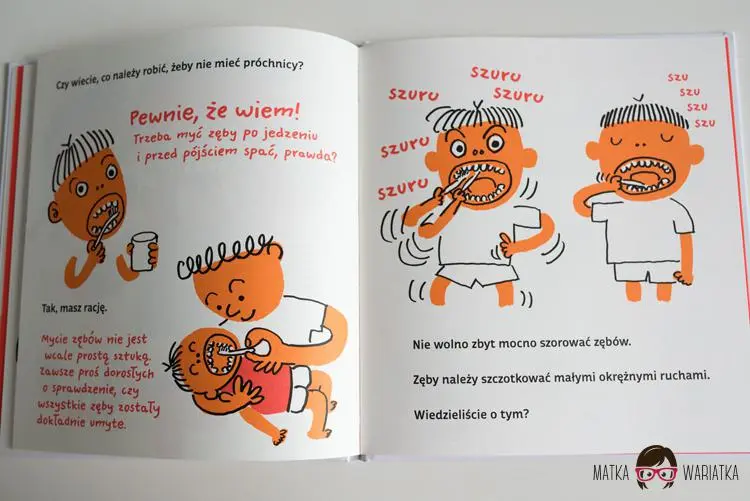 Czy wiecie, co należy robić, żeby nie mieć próchnicy?
Pewnie, że wiem!
Trzeba myć zęby po jedzeniu
i przed pójściem spać, prawda?
Tak, masz rację.
Mycie zębów nie jest
wcale prostą sztuką.
Zawsze proś dorosłych
o sprawdzenie, czy
wszystkie zęby zostały
dokładnie umyte.
szuru
szuru
szuru
szuru
szuru
szu
szu
szu
szu
Nie wolno zbyt mocno szorować zębów.
Zęby należy szczotkować małymi okrężnymi ruchami.
Wiedzieliście o tym?
MATKA WARIATKA